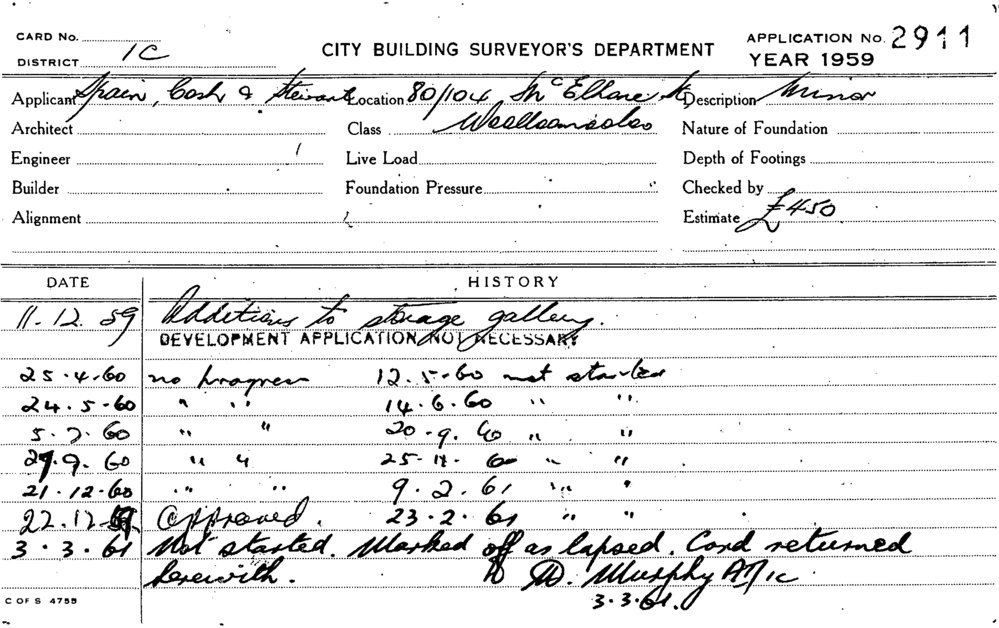 CARD No.
CITY BUILDING SURVEYOR'S DEPARTMENT
APPLICATION No. 2911
DISTRICT 1C
YEAR 1959
Applicant Spain, Cosh & Stewart Location 80/104 McElhone St Description Minor
Architect Class Woolloomooloo Nature of Foundation
Engineer Live Load Depth of Footings
Builder Foundation Pressure Checked by
Alignment Estimate £450
DATE HISTORY
11.12.59 Additions to storage gallery.
DEVELOPMENT APPLICATION NOT NECESSARY
25.4.60 no progress 12.5.60 not started
24.5.60 " " 14.6.60 " "
5.7.60 " " 20.9.60 " "
27.9.60 " " 25.11.60 " "
21.12.60 " " 9.2.61 " "
22.12.59 Approved. 23.2.61 " "
3.3.61 Not started. Marked off as lapsed. Card returned
herewith. D. Murphy
3.3.61.
C OF S 4755